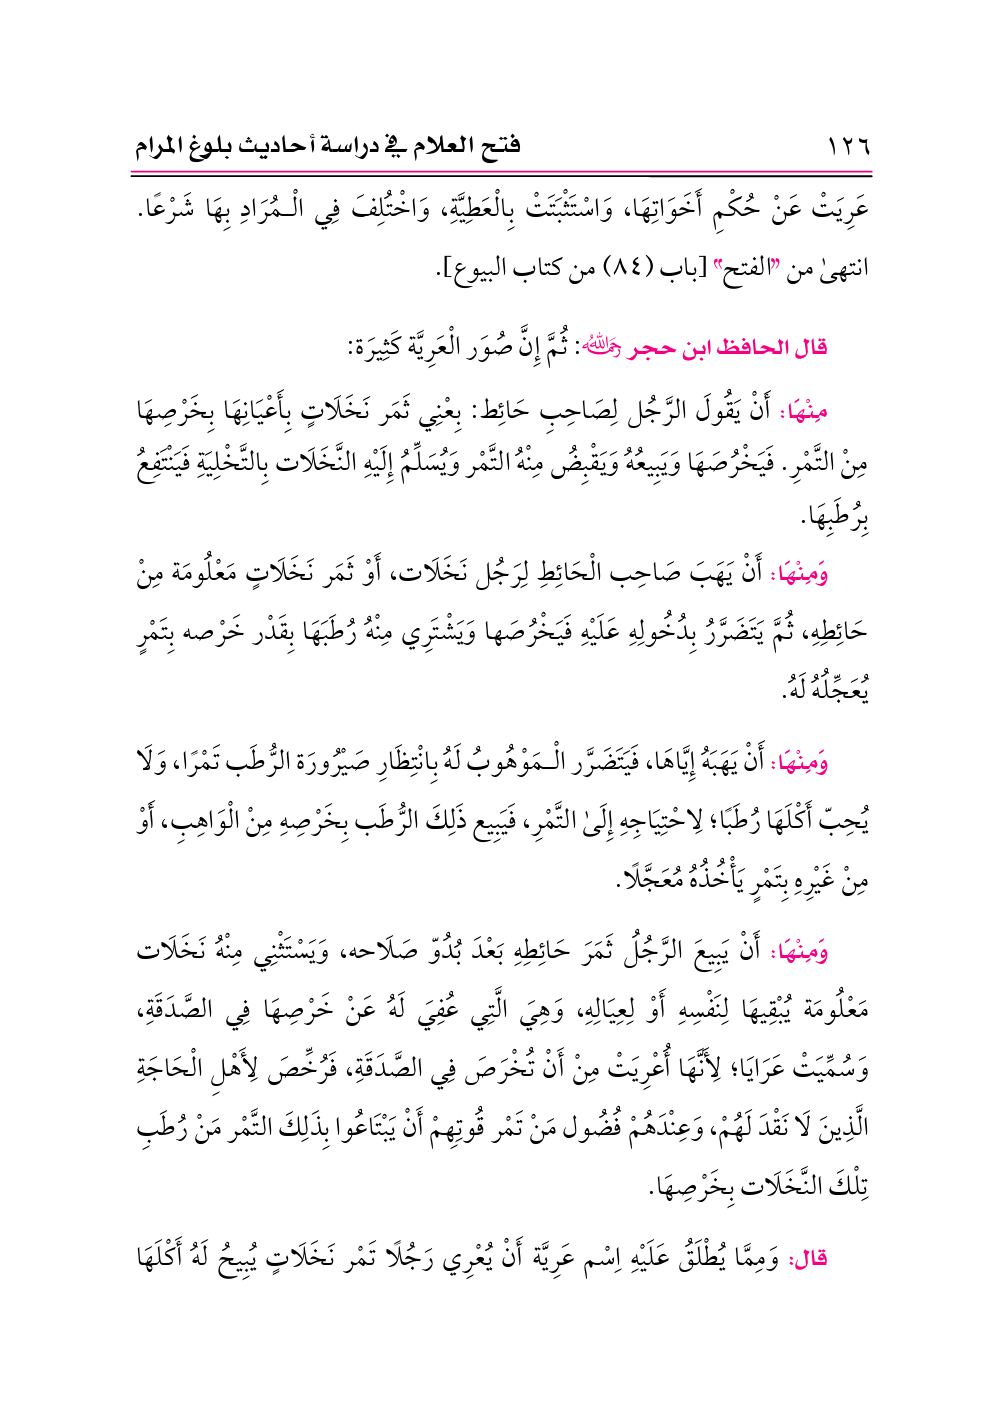 ١٢٦ فتح العلام في دراسة أحاديث بلوغ المرام
عَرِيَتْ عَنْ حُكْمِ أَخَوَاتِهَا، وَاسْتَثْبَتَتْ بِالْعَطِيَّةِ، وَاخْتُلِفَ فِي الْـمُرَادِ بِهَا شَرْعًا.
انتهىٰ من "الفتح" [باب (٨٤) من كتاب البيوع].
قال الحافظ ابن حجر رحمه الله: ثُمَّ إِنَّ صُوَر الْعَرِيَّة كَثِيرَة:
مِنْهَا: أَنْ يَقُولَ الرَّجُل لِصَاحِبِ حَائِط: بِعْنِي ثَمَر نَخَلَاتٍ بِأَعْيَانِهَا بِخَرْصِهَا
مِنْ التَّمْرِ. فَيَخْرُصَهَا وَيَبِيعُهُ وَيَقْبِضُ مِنْهُ التَّمْر وَيُسَلِّمُ إِلَيْهِ النَّخَلَات بِالتَّخْلِيَةِ فَيَنْتَفِعُ
بِرُطَبِهَا.
وَمِنْهَا: أَنْ يَهَبَ صَاحِب الْحَائِطِ لِرَجُل نَخَلَات، أَوْ ثَمَر نَخَلَاتٍ مَعْلُومَة مِنْ
حَائِطِهِ، ثُمَّ يَتَضَرَّرُ بِدُخُولِهِ عَلَيْهِ فَيَخْرُصَها وَيَشْتَرِي مِنْهُ رُطَبَهَا بِقَدْر خَرْصه بِتَمْرٍ
يُعَجِّلُهُ لَهُ.
وَمِنْهَا: أَنْ يَهَبَهُ إِيَّاهَا، فَيَتَضَرَّر الْـمَوْهُوبُ لَهُ بِانْتِظَارِ صَيْرُورَة الرُّطَب تَمْرًا، وَلَا
يُحِبّ أَكْلَهَا رُطَبًا؛ لِاحْتِيَاجِهِ إِلَىٰ التَّمْرِ، فَيَبِيع ذَلِكَ الرُّطَب بِخَرْصِهِ مِنْ الْوَاهِبِ، أَوْ
مِنْ غَيْرِهِ بِتَمْرٍ يَأْخُذُهُ مُعَجَّلًا.
وَمِنْهَا: أَنْ يَبِيعَ الرَّجُلُ ثَمَرَ حَائِطِهِ بَعْدَ بُدُوّ صَلَاحه، وَيَسْتَثْنِي مِنْهُ نَخَلَات
مَعْلُومَة يُبْقِيهَا لِنَفْسِهِ أَوْ لِعِيَالِهِ، وَهِيَ الَّتِي عُفِيَ لَهُ عَنْ خَرْصِهَا فِي الصَّدَقَةِ،
وَسُمِّيَتْ عَرَايَا؛ لِأَنَّهَا أُعْرِيَتْ مِنْ أَنْ تُخْرَصَ فِي الصَّدَقَةِ، فَرُخِّصَ لِأَهْلِ الْحَاجَةِ
الَّذِينَ لَا نَقْدَ لَهُمْ، وَعِنْدَهُمْ فُضُول مَنْ تَمْر قُوتِهِمْ أَنْ يَبْتَاعُوا بِذَلِكَ التَّمْر مَنْ رُطَبِ
تِلْكَ النَّخَلَات بِخَرْصِهَا.
قال: وَمِمَّا يُطْلَقُ عَلَيْهِ اِسْم عَرِيَّة أَنْ يُعْرِي رَجُلًا تَمْر نَخَلَاتٍ يُبِيحُ لَهُ أَكْلَهَا